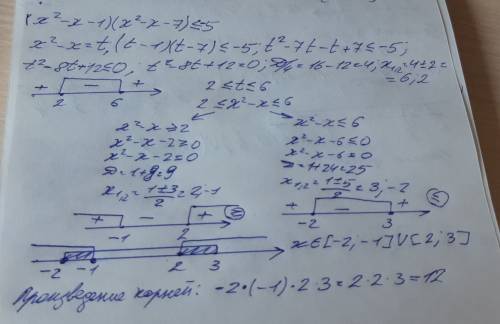 (x²-x-1)(x²-x-7)≤5
x²-x=t, (t-1)(t-7)≤-5; t²-7t-t+7≤-5;
t²-8t+12≤0, t²-8t+12=0; D/4=16-12=4; x₁,₂=4±2=
=6; 2
+ - +
2 6
2≤t≤6
2≤x²-x≤6
x²-x≥2
x²-x-2≥0
x²-x-2=0
D=1+8=9
x₁,₂=(1±3)/2=2; -1
x²-x≤6
x²-x-6≤0
x²-x-6=0
D=1+24=25
x₁,₂=(1±5)/2=3; -2
+ - + ≥
-1 2
+ - + ≤
-2 3
-2 -1 2 3
x∈[-2; -1]∪[2; 3]
Произведение корней: -2·(-1)·2·3=2·2·3=12